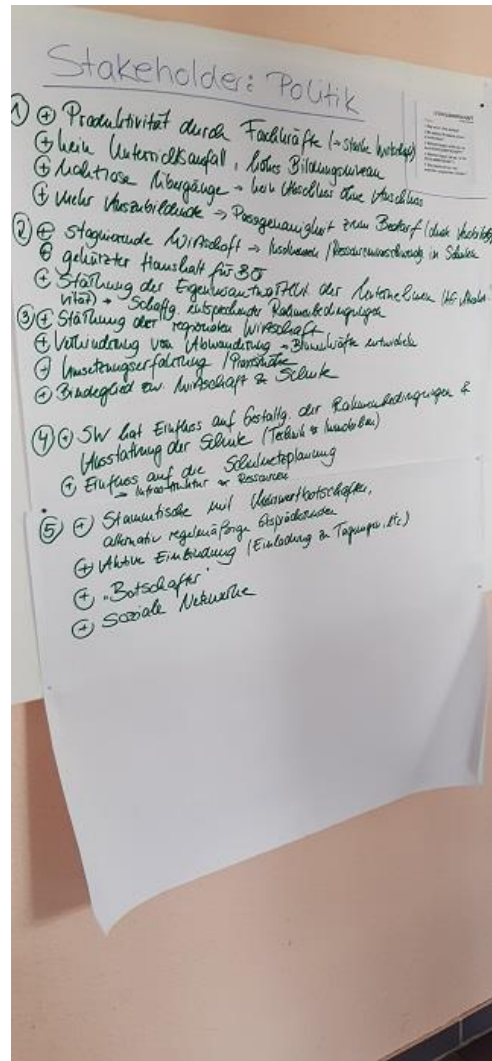 Stakeholder: Politik
① ⊕ Produktivität durch Fachkräfte (→ starke Wirtschaft)
⊕ kein Unterrichtsausfall, hohes Bildungsniveau
⊕ Nahtlose Übergänge → kein Abschluss ohne Anschluss
⊕ mehr Auszubildende → Passgenauigkeit zum Bedarf (durch
② ⊕ stagnierende Wirtschaft → Insolvenzen / in Schulen
⊕ gekürzter Haushalt für BO
⊕ Stärkung der Eigenverantwortlichkeit der Unternehmen (AG-
vität) → Schaffg. entsprechender Rahmenbedingungen
③ ⊕ Stärkung der regionalen Wirtschaft
⊕ Verhinderung von Abwanderung →
⊕ Umsetzungserfahrung / Praxisnähe
⊕ Bindeglied zw. Wirtschaft & Schule
④ ⊕ SW hat Einfluss auf Gestaltg. der Rahmenbedingungen &
Ausstattung der Schule (Technik & Immobilien)
⊕ Einfluss auf die Schulnetzplanung
→ Infrastruktur & Ressourcen
⑤ ⊕ Stammtische mit Mehrwertbotschaften,
alternativ regelmäßige Gesprächsrunden
⊕ Aktive Einbindung (Einladung zu Tagungen, etc.)
⊕ "Botschafter"
⊕ Soziale Netzwerke